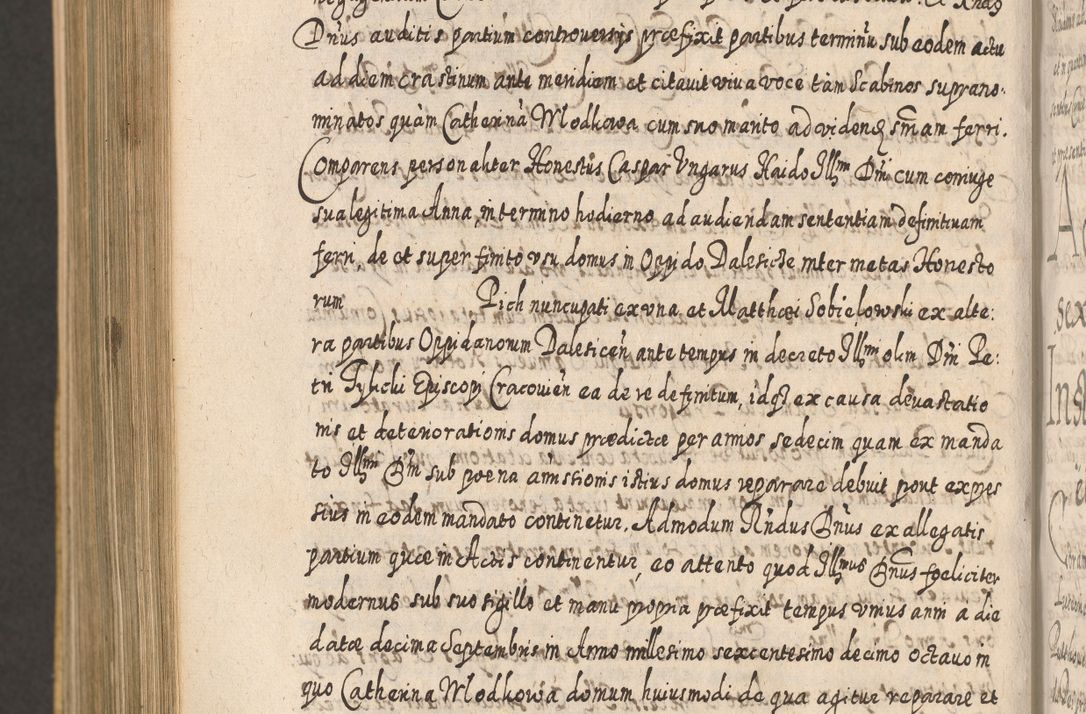 Dnus auditis partium controversijs præfixit partibus terminũ sub eodem actu
ad diem crastinum ante meridiem et citavit viva voce tam Scabinos suprano:
minatos quàm Catherinã Wlodkowa cum suo marito ad videndũ smam ferri.
Comparens personaliter Honestus Caspar Ungarus Haido Illmi Dni cum coniuge
sua legitima Anna, in termino hodierno ad audiendam sententiam definitivam
ferri, de et super finito usu domus in Oppido Dalesicze inter metas Honesto
rum Pich nuncupati ex una, et Matthæi Sobielowski ex alte:
ra partibus Oppidanorum Dalesiceñ ante tempus in decreto Illmi olim Dni Pe:
tri Tylicki Episcopi Cracovieñ ea de re definitum, idqȝ ex causa devastatio
nis et deteriorationis domus prædictæ per annos sedecim quam ex manda
to Illmi Dni sub poena amissionis istius domus reparare debuit prout expres
sius in eodem mandato continetur. Admodum Rndus Dnus ex allegatis
partium quæ in Actis continentur, eo attento quod Illmus Dnus foeliciter
modernus sub suo sigillo et manu propria præfixit tempus unius anni a die
datæ decima Septembris in Anno millesimo sexcentesimo decimo octavo in
quo Catherina Wlodkowa domum huiusmodi de qua agitur reparare et